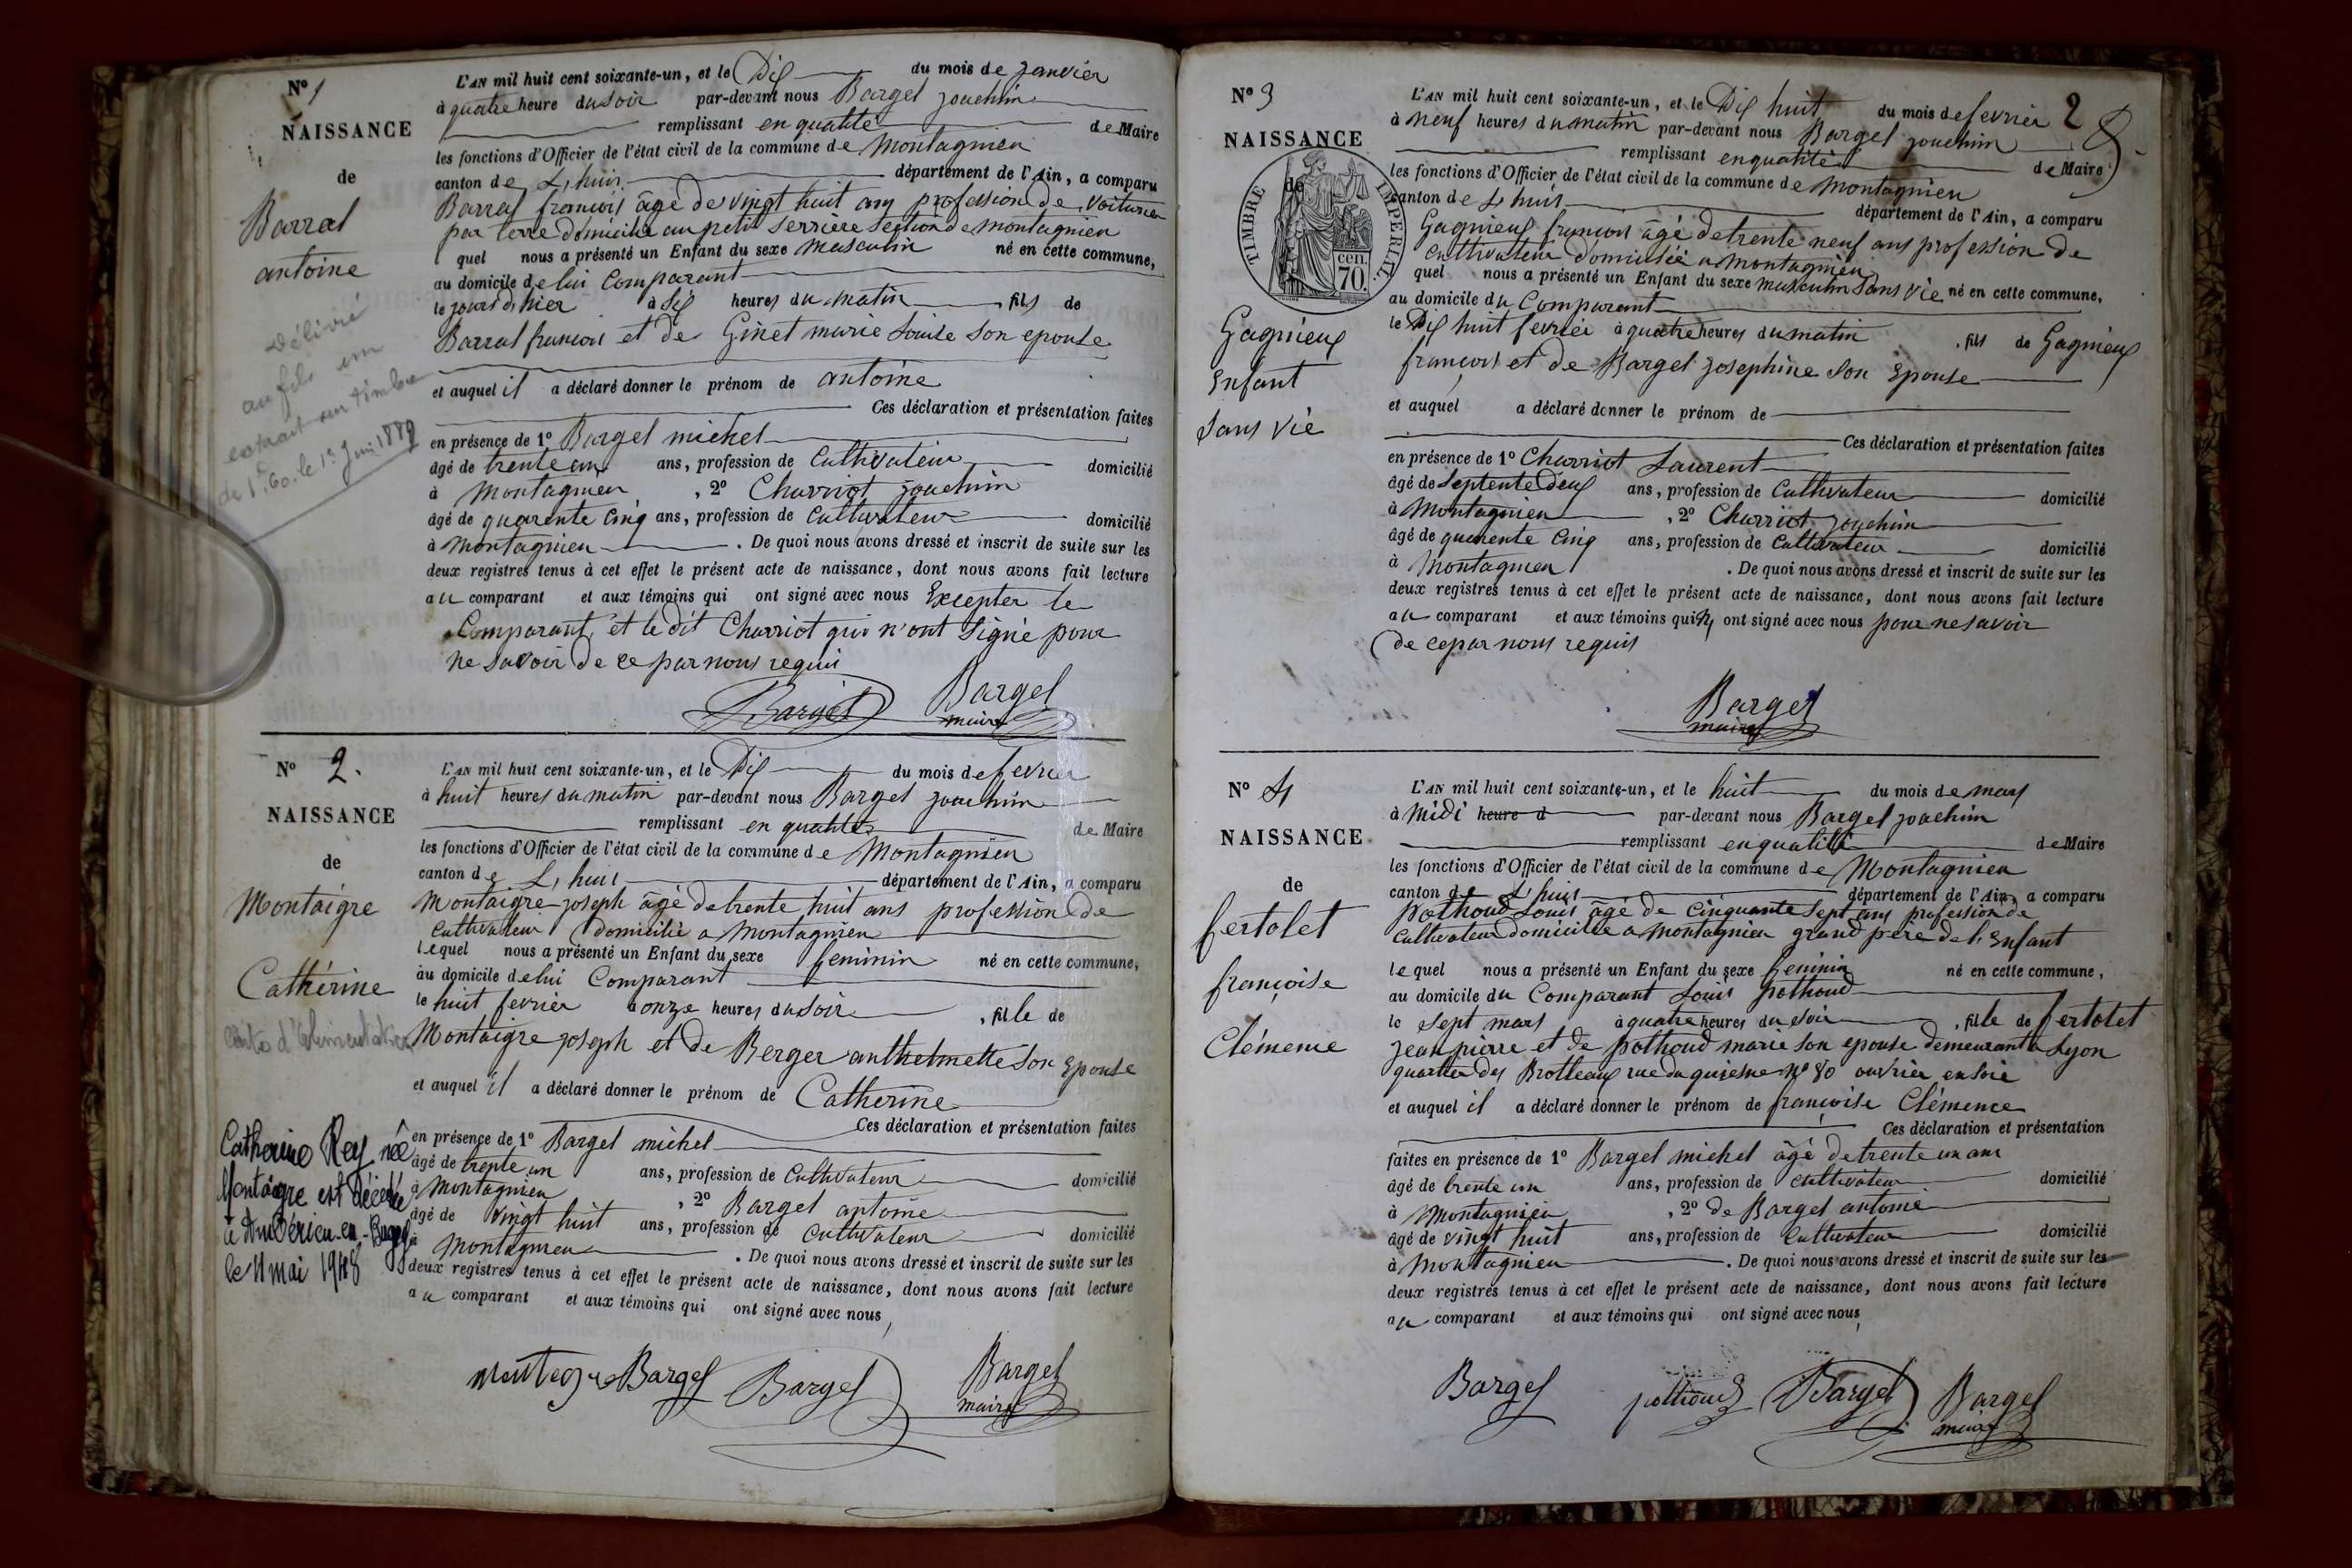 N° 1
NAISSANCE
de
Barral
antoine
délivré
au fils un
extrait sur timbre
de 1f.60. le 1er Juin 1889
L'AN mil huit cent soixante-un, et le Dix du mois de janvier
à quatre heure du soir par-devant nous Barget jouachim
remplissant en qualité de Maire
les fonctions d'Officier de l'état civil de la commune de Montagnieu
canton de L'huis département de l'Ain, a comparu
Barral francois âgé de vingt huit ans profession de voiturier
par terre domicilié au petit serrière section de montagnieu
l quel nous a présenté un Enfant du sexe masculin né en cette commune,
au domicile de lui Comparant
le jourd'hier à Six heures du matin fils de
Barral francois et de Ginet marie Louise son epouse
et auquel il a déclaré donner le prénom de antoine
Ces déclaration et présentation faites
en présence de 1° Barget michel
âgé de trente un ans, profession de Cultivateur domicilié
à Montagnieu, 2° Charriot jouachim
âgé de quarente Cinq ans, profession de Cultivateur domicilié
à Montagnieu. De quoi nous avons dressé et inscrit de suite sur les
deux registres tenus à cet effet le présent acte de naissance, dont nous avons fait lecture
au comparant et aux témoins qui ont signé avec nous Excepter le
Comparant et le dit Charriot qui n'ont Signé pour
ne savoir de ce par nous requis
Barget Barget
maire
N° 2.
NAISSANCE
de
Montaigre
Cathérine
Carte d'alimentation
Catherine Rey née
Montaigre est décédée
à Ambérieu-en-Bugey
le 11 mai 1948
L'AN mil huit cent soixante-un, et le Dix du mois de fevrier
à huit heures du matin par-devant nous Barget jouachim
remplissant en qualité de Maire
les fonctions d'Officier de l'état civil de la commune de Montagnieu
canton de L'huis département de l'Ain, a comparu
Montaigre joseph âgé de trente huit ans profession de
Cultivateur domicilié a Montagnieu
lequel nous a présenté un Enfant du sexe feminin né en cette commune,
au domicile de lui Comparant
le huit fevrier à onze heures du soir, fille de
Montaigre joseph et de Berger anthelmette son Epouse
et auquel il a déclaré donner le prénom de Catherine
Ces déclaration et présentation faites
en présence de 1° Barget michel
âgé de trente un ans, profession de Cultivateur domicilié
à Montagnieu, 2° Barget antoine
âgé de vingt huit ans, profession de Cultivateur domicilié
à Montagnieu. De quoi nous avons dressé et inscrit de suite sur les
deux registres tenus à cet effet le présent acte de naissance, dont nous avons fait lecture
au comparant et aux témoins qui ont signé avec nous,
Barget Barget Barget
maire
N° 3
NAISSANCE
de
TIMBRE IMPERIAL
70. cen.
Gagnieux
Enfant
Sans vie
2
L'AN mil huit cent soixante-un, et le Dix huit du mois de fevrier
à neuf heures du matin par-devant nous Barget jouachim
remplissant en qualité de Maire
les fonctions d'Officier de l'état civil de la commune de Montagnieu
canton de L'huis département de l'Ain, a comparu
Gagnieux francois âgé de trente neuf ans profession de
Cultivateur domicilié a Montagnieu
quel nous a présenté un Enfant du sexe masculin Sans vie né en cette commune,
au domicile du Comparant
le Dix huit fevrier à quatre heures du matin, fils de Gagnieux
francois et de Barget josephine son Epouse
et auquel a déclaré donner le prénom de
Ces déclaration et présentation faites
en présence de 1° Charriot Laurent
âgé de Septente Deux ans, profession de Cultivateur domicilié
à Montagnieu, 2° Charriot jouachim
âgé de quarente Cinq ans, profession de Cultivateur domicilié
à Montagnieu. De quoi nous avons dressé et inscrit de suite sur les
deux registres tenus à cet effet le présent acte de naissance, dont nous avons fait lecture
au comparant et aux témoins qui n' ont signé avec nous pour ne savoir
de ce par nous requis
Barget
maire
N° 4
NAISSANCE
de
fertolet
françoise
Clémence
L'AN mil huit cent soixante-un, et le huit du mois de mars
à Midi heure d par-devant nous Barget joachim
remplissant en qualité de Maire
les fonctions d'Officier de l'état civil de la commune de Montagnieu
canton de L'huis département de l'Ain, a comparu
pothoud Louis âgé de Cinquante Sept ans profession de
Cultivateur domicilié a Montagnieu grand pere de l'Enfant
lequel nous a présenté un Enfant du sexe feminin né en cette commune,
au domicile du Comparant Louis pothoud
le sept mars à quatre heures du soir, fille de fertolet
jean pierre et de pothoud marie son epouse demeurant a Lyon
quartier des Brotteaux rue duquesne N° 80 ouvrier en soie
et auquel il a déclaré donner le prénom de françoise Clémence
Ces déclaration et présentation
faites en présence de 1° Barget michel âgé de trente un ans
âgé de trente un ans, profession de cultivateur domicilié
à Montagnieu, 2° de Barget antoine
âgé de vingt huit ans, profession de Cultivateur domicilié
à Montagnieu. De quoi nous avons dressé et inscrit de suite sur les
deux registres tenus à cet effet le présent acte de naissance, dont nous avons fait lecture
au comparant et aux témoins qui ont signé avec nous,
Barget pothoud Barget Barget
maire